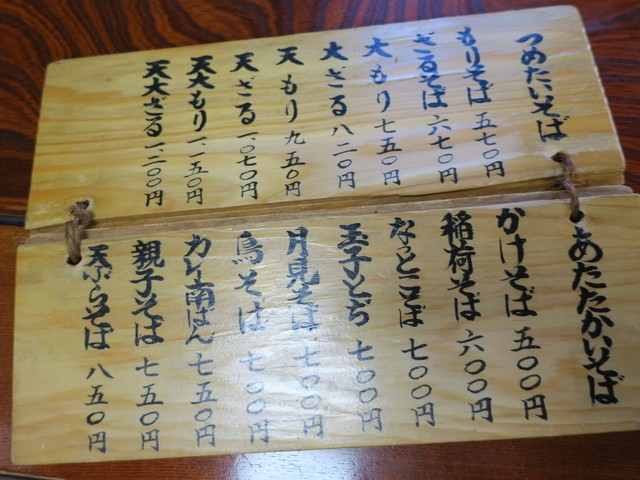 つめたいそば
もりそば 五七〇円
ざるそば 六七〇円
大もり 七五〇円
大ざる 八二〇円
天もり 九五〇円
天ざる 一、〇七〇円
天大もり 一、一五〇円
天大ざる 一、二〇〇円
あたたかいそば
かけそば 五〇〇円
稲荷そば 六〇〇円
なところそば 七〇〇円
玉子とぢ 七〇〇円
月見そば 七〇〇円
鳥そば 七〇〇円
カレー南ばん 七五〇円
親子そば 七五〇円
天ぷらそば 八五〇円